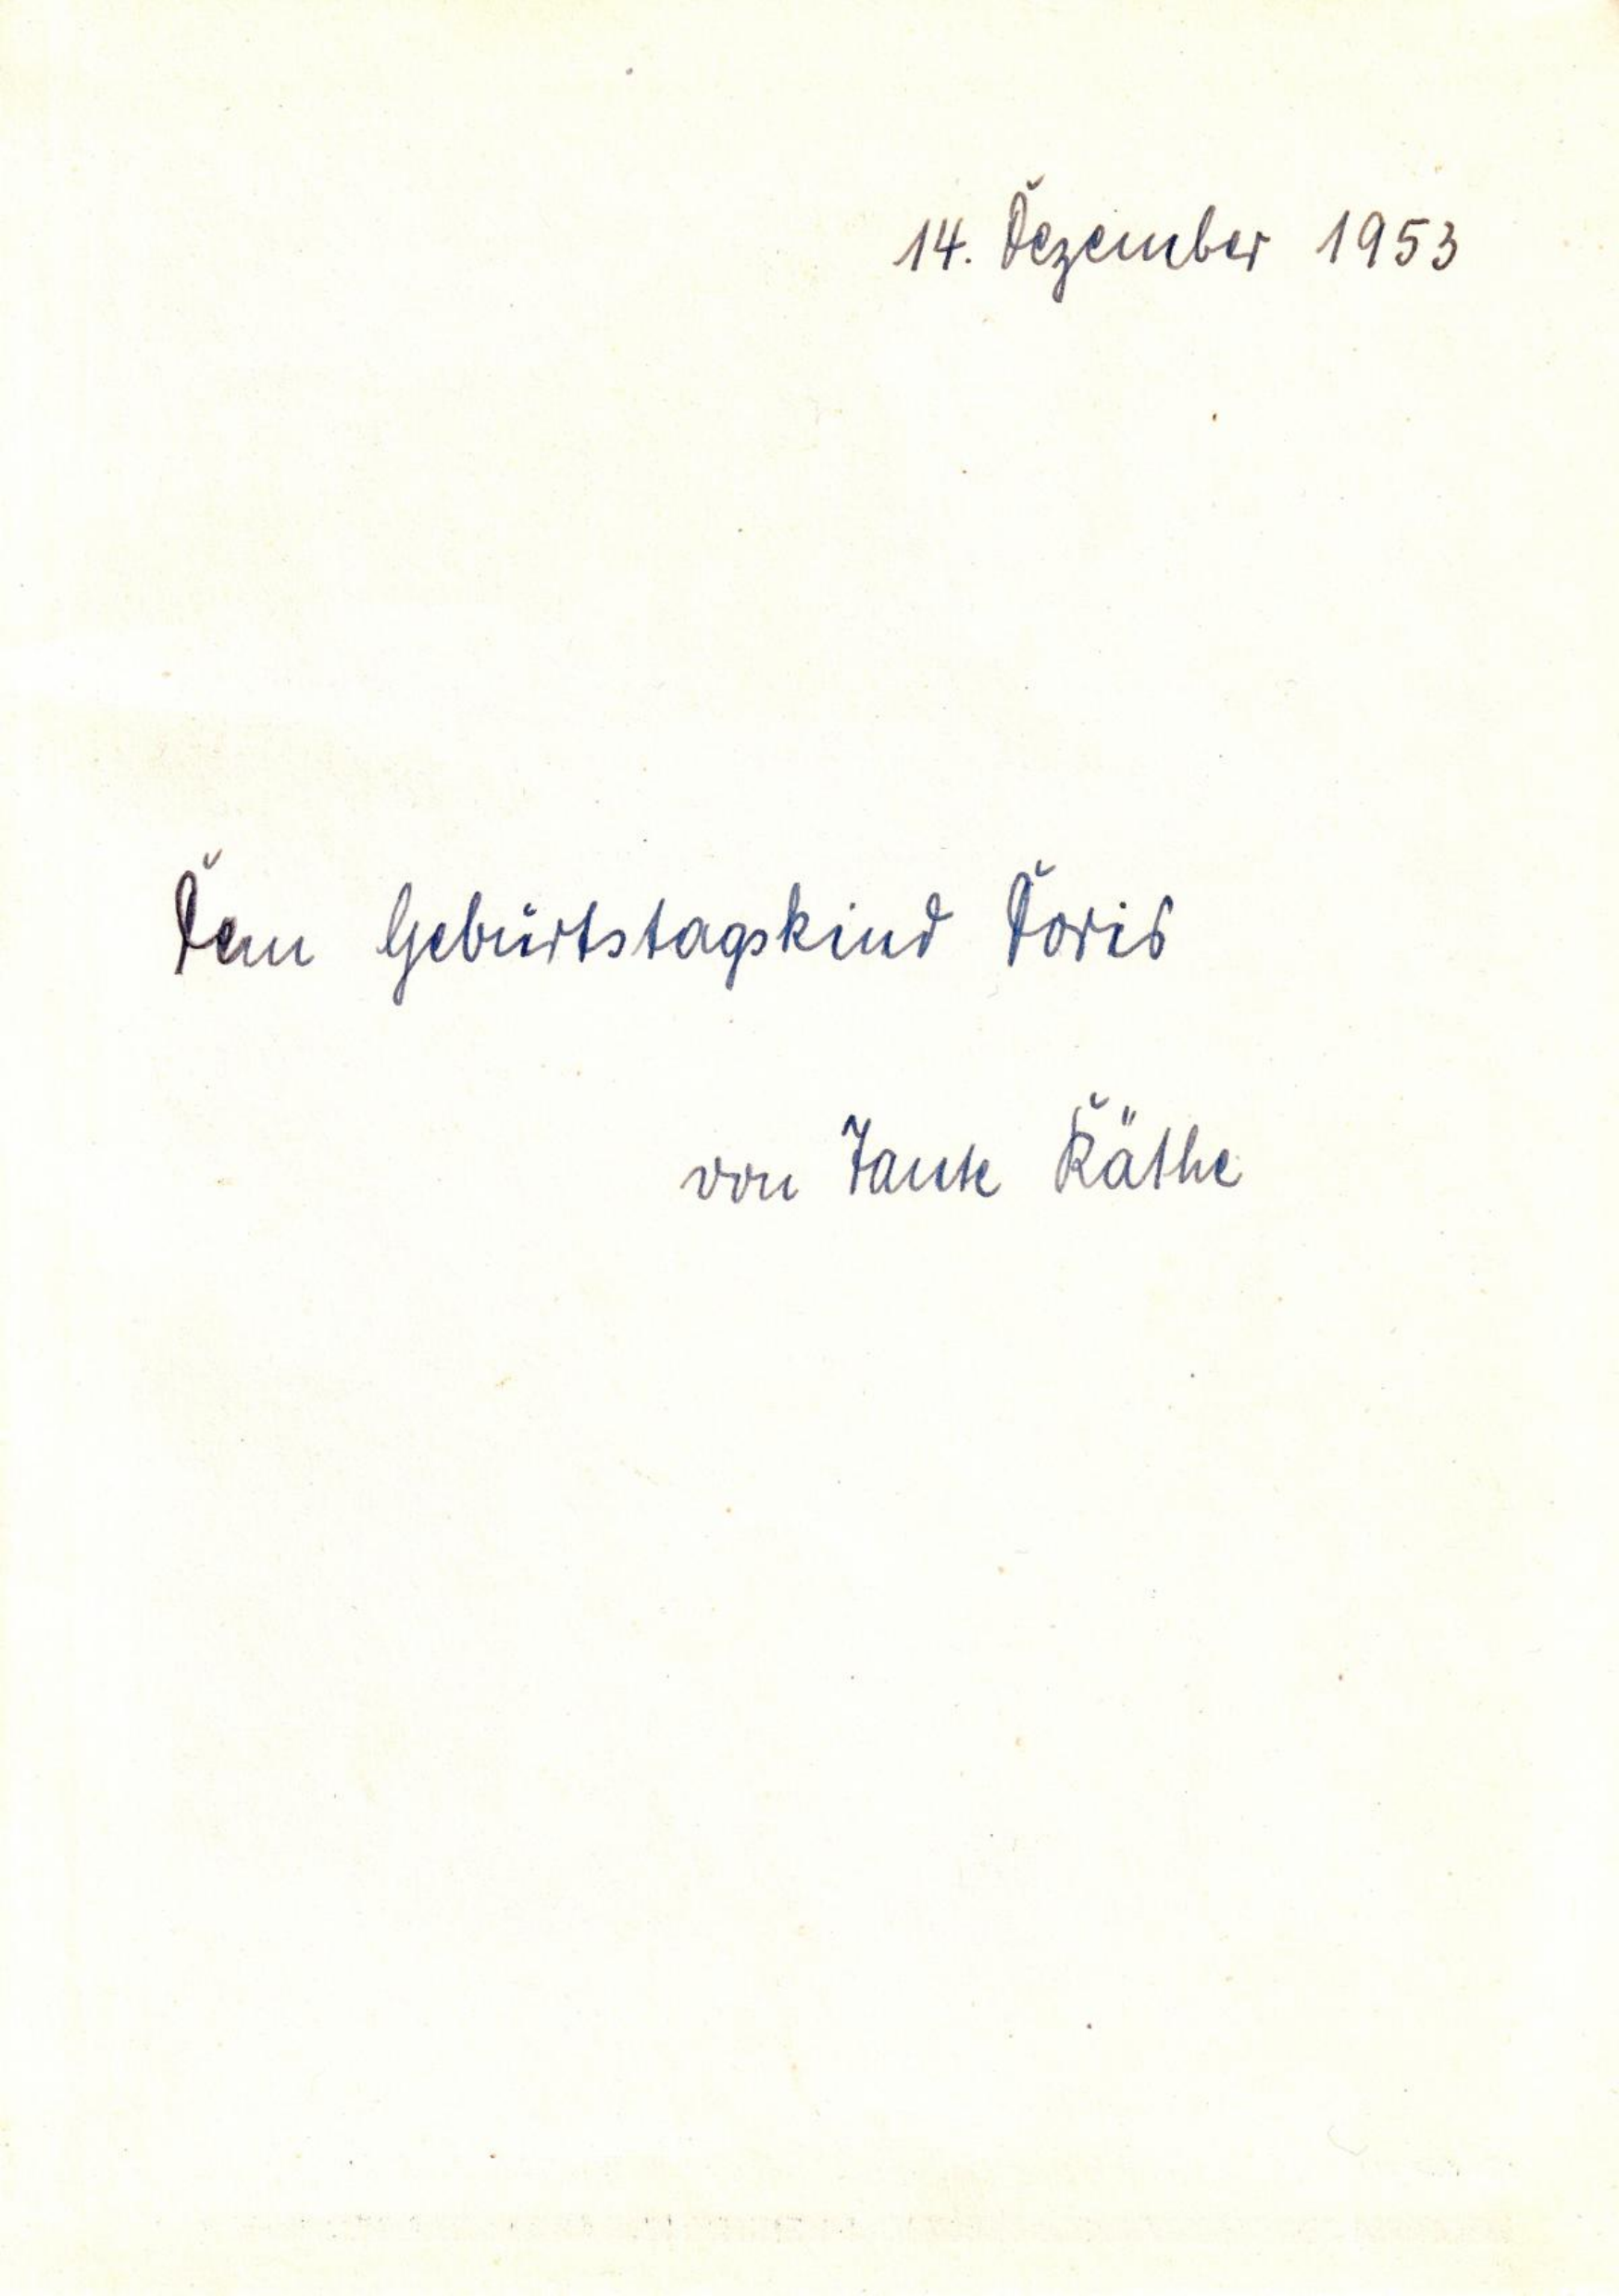 14. Dezember 1953
Dem Geburtstagskind Doris
von Tante Käthe